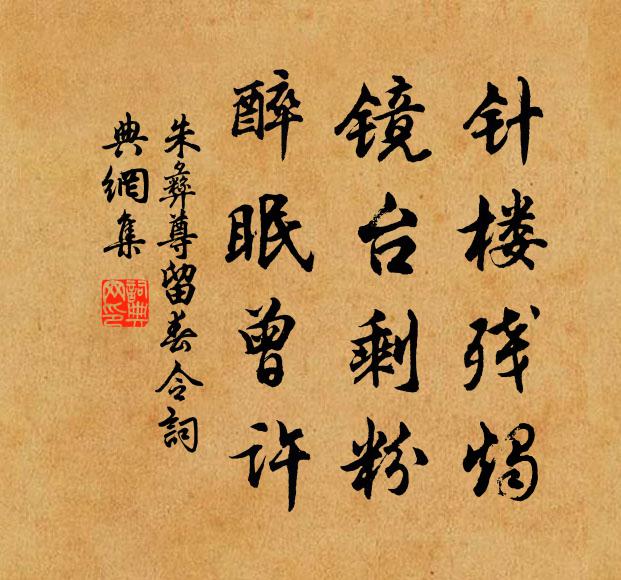 针楼残烛
镜台剩粉
醉眠曾许
朱彝尊留春令词
典網集
詞典网印